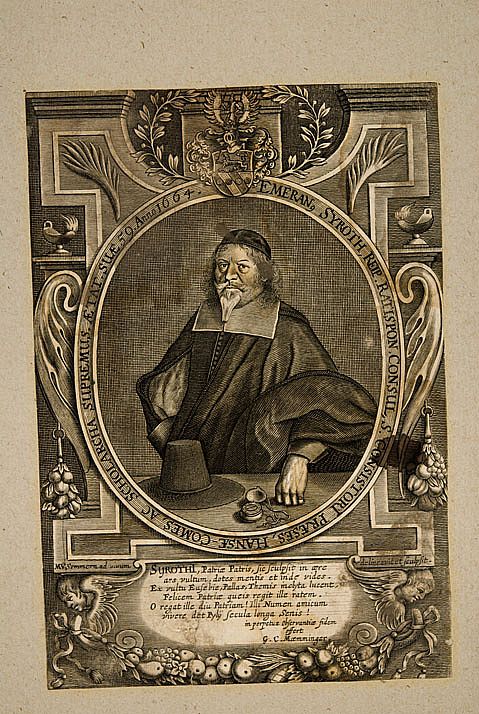 EMERAN, SYROTH, REIP. RATISPON CONSUL, S. CONSISTORI PRÆSES, HANSÆ-COMES, AC SCHOLARCHA SUPREMUS, ÆTAT. SUÆ 59. Anno 1664.
ad vivum. sculpsit.
SYROTHI, Patriæ Patris, sic sculpsit in ære
ars, vultum, dotes mentis et inde vides.
Ex vultu Eusebie, Pallas, Themis inclyta lucent,
Felicem Patriæ queis regit ille ratem.
O regat ille diu Patriam! Illi Numen amicum
vivere det Pylÿ secula longa Senis!
in perpetuæ observantiæ fidem
G. C. Memminger